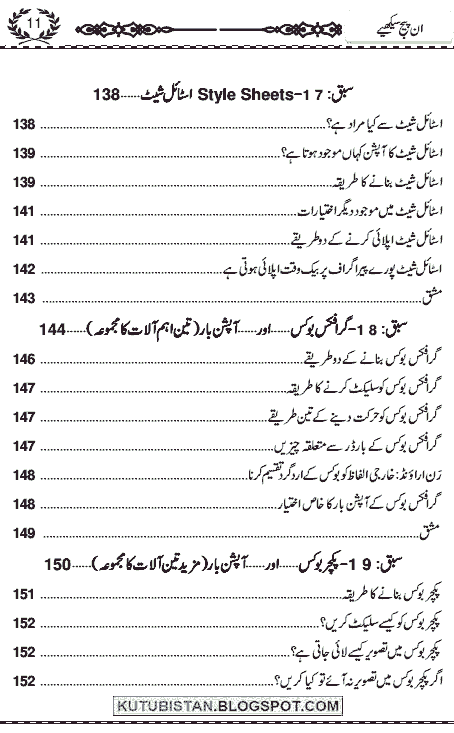 ان پیج سیکھیے 11
سبق: 17-Style Sheets اسٹائل شیٹ......138
اسٹائل شیٹ سے کیا مراد ہے؟ 138
اسٹائل شیٹ کا آپشن کہاں موجود ہوتا ہے؟ 139
اسٹائل شیٹ بنانے کا طریقہ 139
اسٹائل شیٹ میں موجود دیگر اختیارات 141
اسٹائل شیٹ اپلائی کرنے کے دو طریقے 141
اسٹائل شیٹ پورے پیراگراف پر بیک وقت اپلائی ہوتی ہے 142
مشق 143
سبق: 18-گرافکس بوکس......اور......آپشن بار (تین اہم آلات کا مجموعہ)......144
گرافکس بوکس بنانے کے دو طریقے 146
گرافکس بوکس کو سلیکٹ کرنے کا طریقہ 147
گرافکس بوکس کو حرکت دینے کے تین طریقے 147
گرافکس بوکس کے بارڈر سے متعلقہ چیزیں 147
رَن اراؤنڈ: خارجی الفاظ کو بوکس کے اردگرد تقسیم کرنا 148
گرافکس بوکس کے آپشن بار کا خاص اختیار 148
مشق 149
سبق: 19-پکچر بوکس......اور......آپشن بار (مزید تین آلات کا مجموعہ)......150
پکچر بوکس بنانے کا طریقہ 151
پکچر بوکس کو کیسے سلیکٹ کریں؟ 152
پکچر بوکس میں تصویر کیسے لائی جاتی ہے؟ 152
اگر پکچر بوکس میں تصویر نہ آئے تو کیا کریں؟ 152
KUTUBISTAN.BLOGSPOT.COM